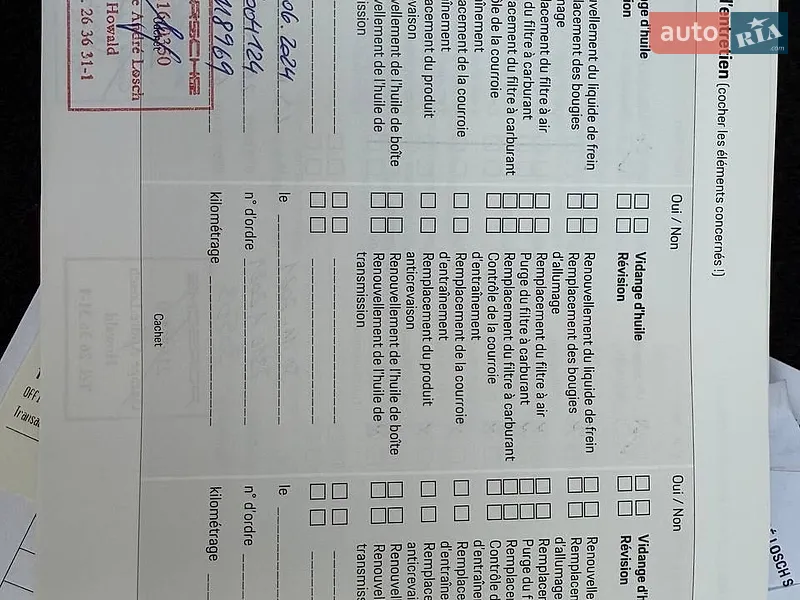 autoRIA.com
l'entretien (cocher les éléments concernés !)
Oui / Non
Vidange d'huile
Révision
Renouvellement du liquide de frein
Remplacement des bougies
d'allumage
Remplacement du filtre à air
Purge du filtre à carburant
Remplacement du filtre à carburant
Contrôle de la courroie
d'entraînement
Remplacement de la courroie
d'entraînement
Remplacement du produit
anticrevaison
Renouvellement de l'huile de boîte
Renouvellement de l'huile de
transmission
le
n° d'ordre
kilométrage
Cachet
ge d'huile
n
vellement du liquide de frein
lacement des bougies
mage
lacement du filtre à air
du filtre à carburant
acement du filtre à carburant
ôle de la courroie
aînement
lacement de la courroie
înement
lacement du produit
evaison
vellement de l'huile de boîte
vellement de l'huile de
mission
06 2024
004124
18969
PORSCHE
André Losch
Howald
26 36 31-1
Oui / Non
Vidange d'h
Révision
Renouvelle
Remplacem
d'allumage
Remplacem
Purge du f
Remplacem
Contrôle d
d'entraîne
Remplace
d'entraîne
Remplace
anticrevai
Renouvel
Renouvel
transmiss
le
n° d'ordre
kilométrage
LOSCH S
OFFI
Transa